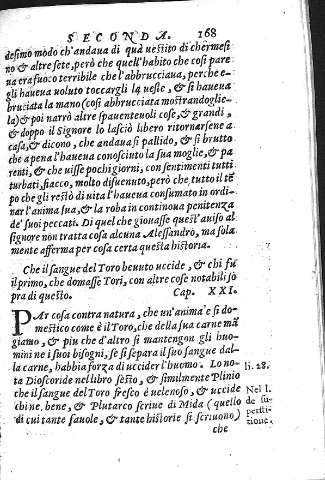 SECONDA. 168
desimo modo ch'andaua di quà uestito di chermesi
no & altre sete, però che quell'habito che così pare
ua era fuoco terribile che l'abbrucciaua, perche e-
gli haueua uoluto toccargli la ueste, & si haueua
bruciata la mano (così abbrucciata mostrandoglie-
la) & poi narrò altre spauenteuoli cose, & grandi,
& doppo il Signore lo lasciò libero ritornarsene a
casa, & dicono, che andaua sì pallido, & sì brutto
che a pena l'haueua conosciuto la sua moglie, & pa
renti, & che uisse pochi giorni, con sentimenti tutti
turbati, fiacco, molto disuenuto, però che tutto il tē
po che gli restò di uita l'haueua consumato in ordi-
nar l'anima sua, & la roba in continoua penitenza
de' suoi peccati. Di quel che giouasse quest'auiso al
signore non tratta cosa alcuna Alessandro, ma sola
mente afferma per cosa certa questa historia.
Che il sangue del Toro beuuto uccide, & chi fu
il primo, che domasse Tori, con altre cose notabili sò
pra di questo. Cap. XXI.
PAr cosa contra natura, che un'anima'e sì do-
mestico come è il Toro, che della sua carne mā
giamo, & piu che d'altro si mantengon gli huo-
mini ne i suoi bisogni, se si sepàra il suo sangue dal-
la carne, habbia forza di uccider l'huomo. Lo no-
ta Dioscoride nel libro sesto, & similmente Plinio
che il sangue del Toro fresco è uelenoso, & uccide
chi ne beue, & Plutarco scriue di Mida (quello
di cui tante fauole, & tante historie si scriuono)
che
li. 28.
Nel l.
de su-
persti-
tione.